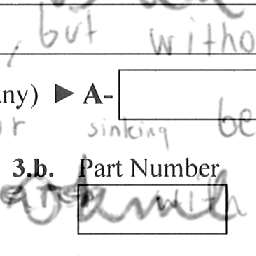 , but witho
ny) ▶ A-
r sinking be
3.b. Part Number
with